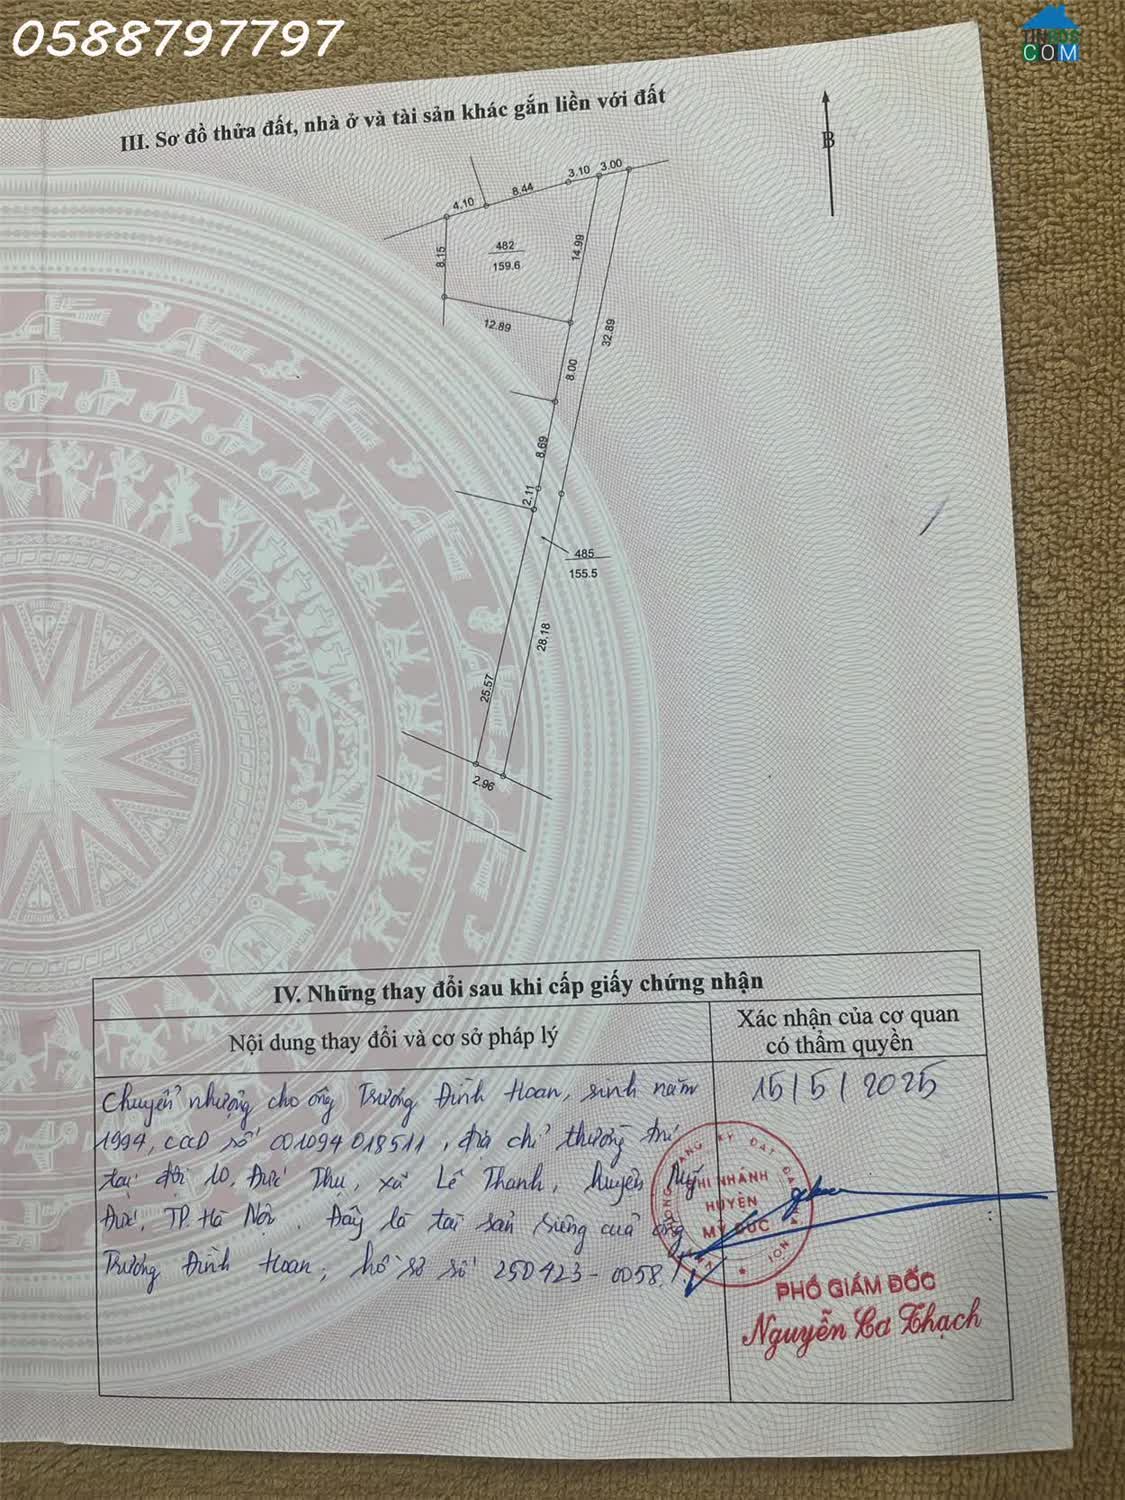 0588797797
TINBDS
COM
III. Sơ đồ thửa đất, nhà ở và tài sản khác gắn liền với đất
B
3.10 3.00
8.44
4.10
482
159.6
8.15
14.99
12.89
32.89
8.00
8.69
2.11
485
155.5
28.18
25.57
2.96
IV. Những thay đổi sau khi cấp giấy chứng nhận
Nội dung thay đổi và cơ sở pháp lý
Xác nhận của cơ quan
có thẩm quyền
Chuyển nhượng cho ông Trương Đình Hoan, sinh năm
1994, CCCD số 001094018511, địa chỉ thường trú
tại đội 10, Đức Thụ, xã Lê Thanh, huyện Mỹ
Đức, TP. Hà Nội. Đây là tài sản riêng của ông
Trương Đình Hoan; hồ sơ số 250423-0058.
15/5/2025
CHI NHÁNH
HUYỆN
MỸ ĐỨC
PHÓ GIÁM ĐỐC
Nguyễn Cơ Thạch